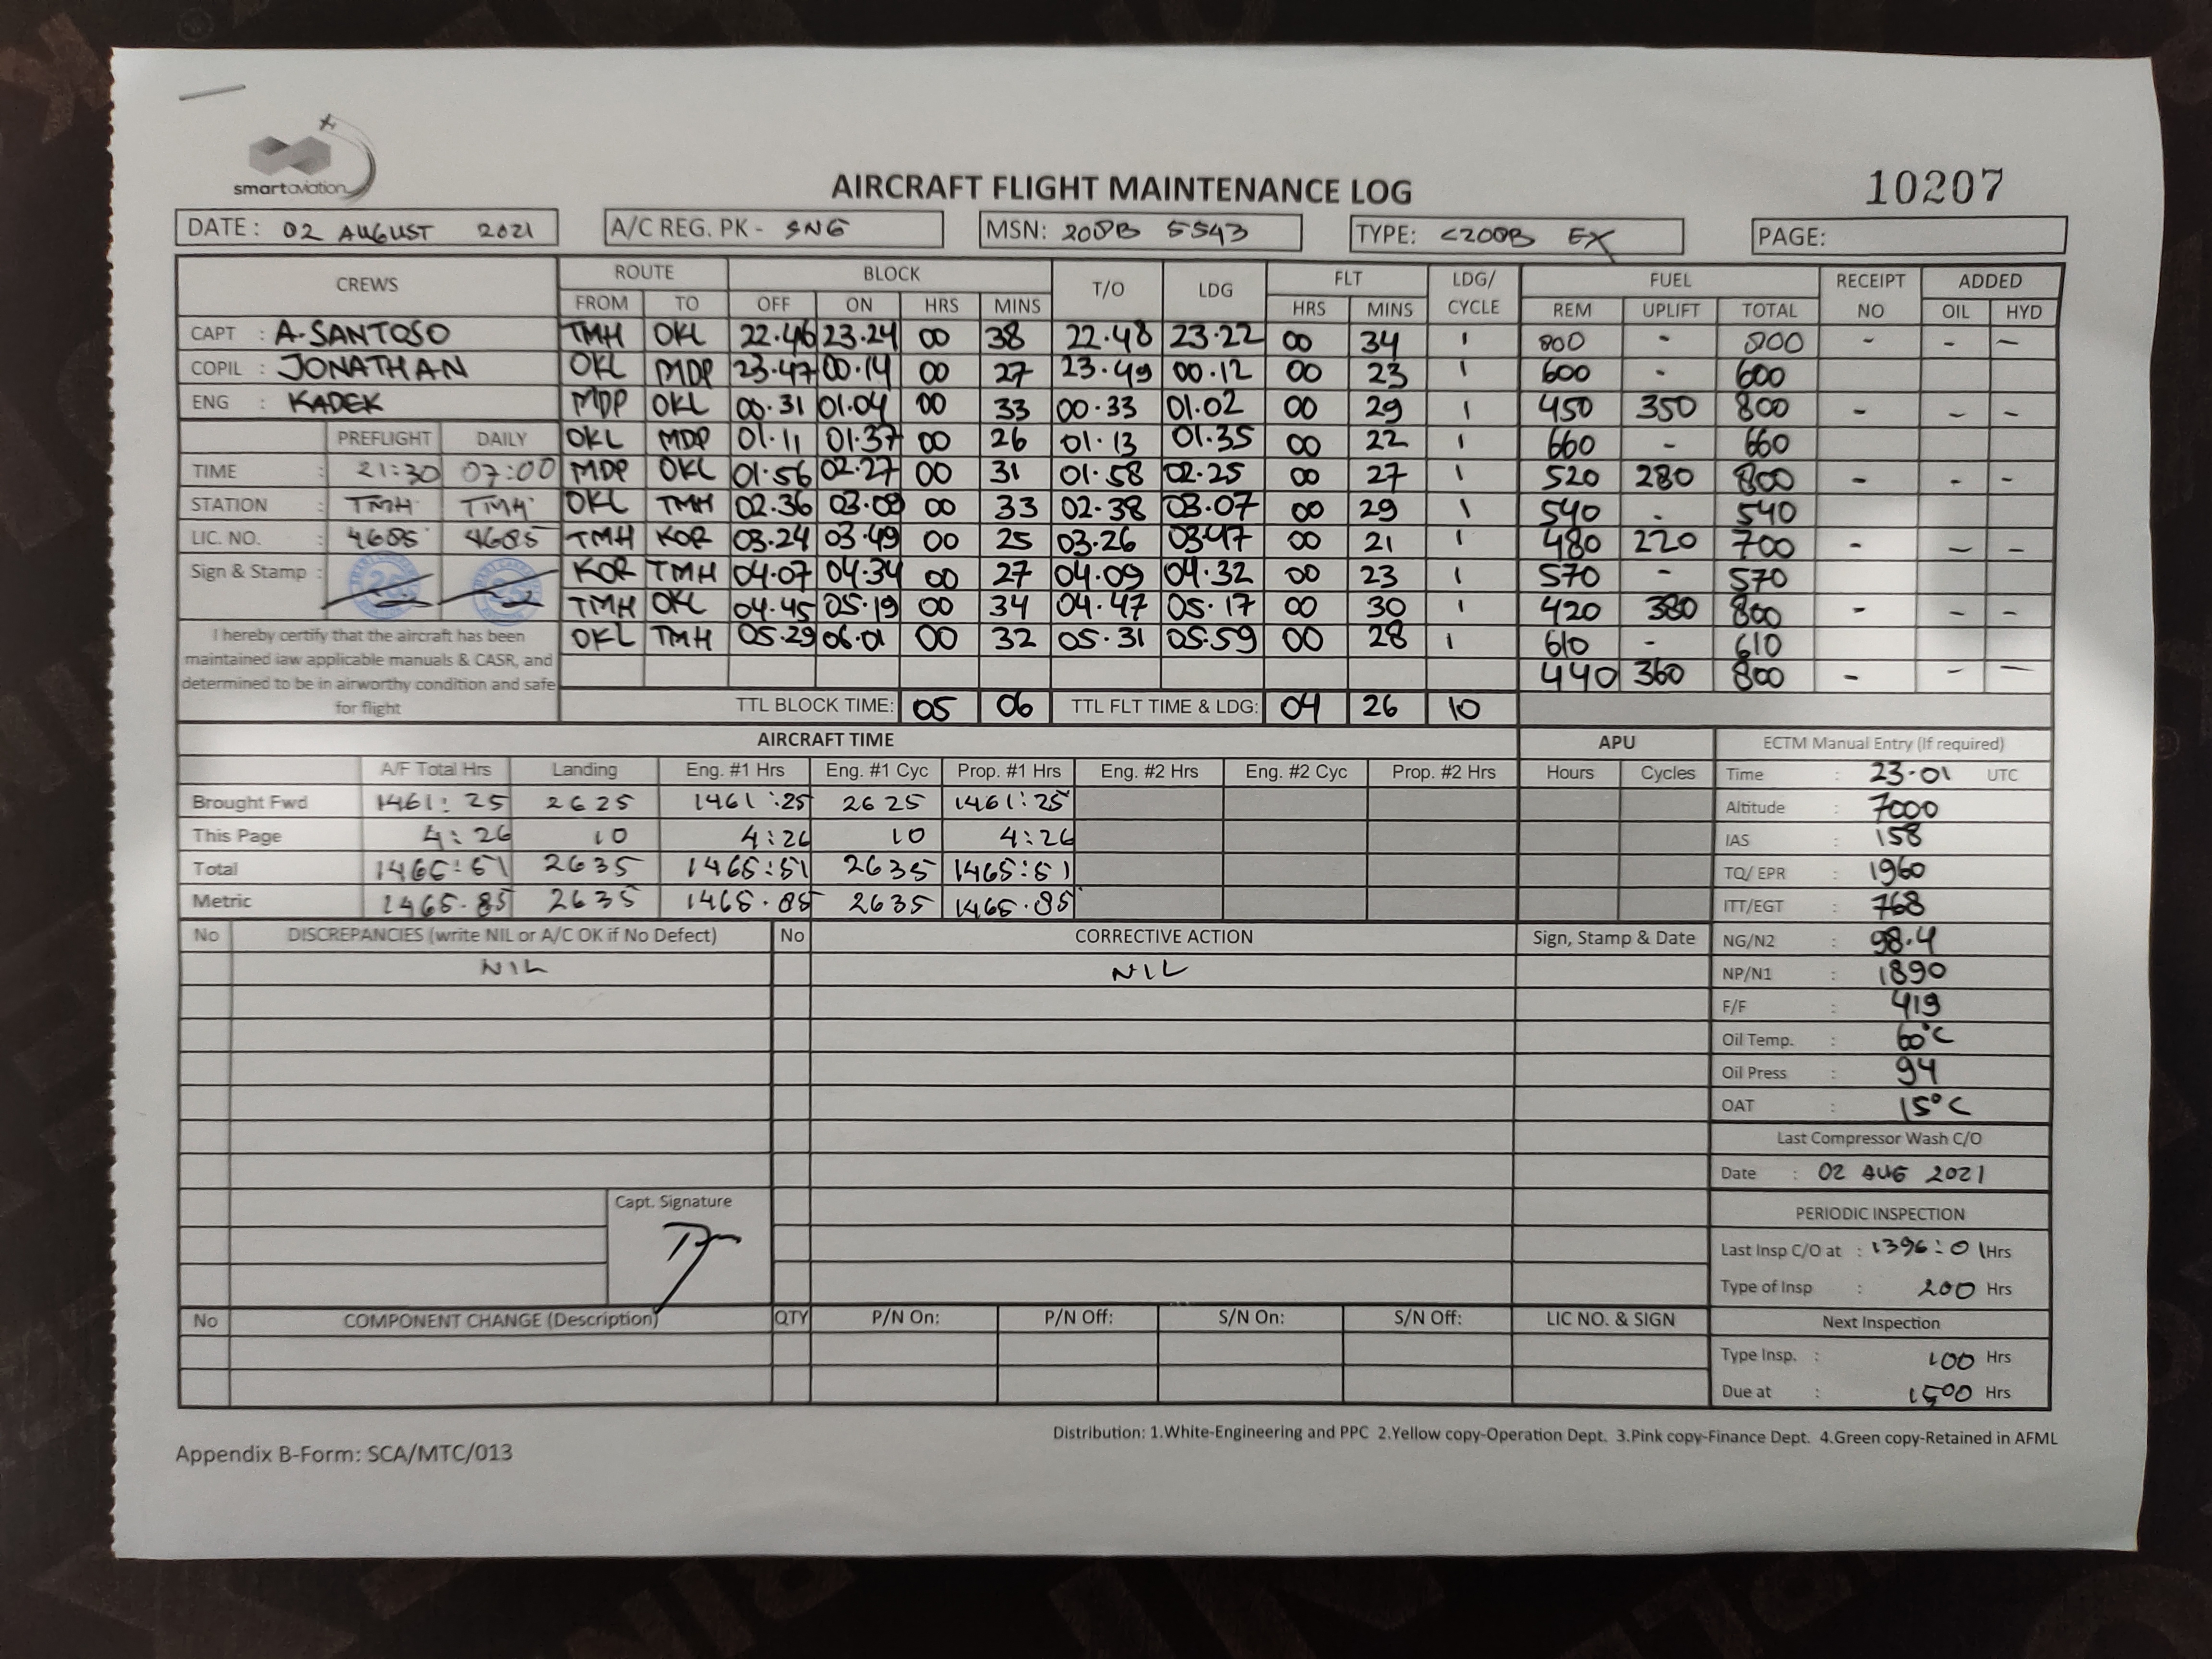 smartaviation
AIRCRAFT FLIGHT MAINTENANCE LOG
10207
DATE: 02 AUGUST 2021 A/C REG. PK - SNG MSN: 208B 5543 TYPE: C208B EX PAGE:
CREWS ROUTE BLOCK T/O LDG FLT LDG/ CYCLE FUEL RECEIPT NO ADDED
FROM TO OFF ON HRS MINS HRS MINS REM UPLIFT TOTAL OIL HYD
CAPT : A.SANTOSO TMH OKL 22.46 23.24 00 38 22.48 23.22 00 34 1 800 - 800 - - -
COPIL : JONATHAN OKL MDP 23.47 00.14 00 27 23.49 00.12 00 23 1 600 - 600
ENG : KADEK MDP OKL 00.31 01.04 00 33 00.33 01.02 00 29 1 450 350 800 - - -
PREFLIGHT DAILY OKL MDP 01.11 01.37 00 26 01.13 01.35 00 22 1 660 - 660
TIME : 21:30 07:00 MDP OKL 01.56 02.27 00 31 01.58 02.25 00 27 1 520 280 800 - - -
STATION : TMH TMH OKL TMH 02.36 03.09 00 33 02.38 03.07 00 29 1 540 - 540
LIC. NO. : 4685 4685 TMH KOR 03.24 03.49 00 25 03.26 03.47 00 21 1 480 220 700 - - -
Sign & Stamp : KOR TMH 04.07 04.34 00 27 04.09 04.32 00 23 1 570 - 570
TMH OKL 04.45 05.19 00 34 04.47 05.17 00 30 1 420 380 800 - - -
OKL TMH 05.29 06.01 00 32 05.31 05.59 00 28 1 610 - 610
440 360 800 - - -
I hereby certify that the aircraft has been
maintained iaw applicable manuals & CASR, and
determined to be in airworthy condition and safe
for flight
TTL BLOCK TIME: 05 06 TTL FLT TIME & LDG: 04 26 10
AIRCRAFT TIME APU ECTM Manual Entry (If required)
A/F Total Hrs Landing Eng. #1 Hrs Eng. #1 Cyc Prop. #1 Hrs Eng. #2 Hrs Eng. #2 Cyc Prop. #2 Hrs Hours Cycles Time : 23.01 UTC
Brought Fwd 1461:25 2625 1461:25 2625 1461:25 Altitude : 7000
This Page 4:26 10 4:26 10 4:26 IAS : 158
Total 1465:51 2635 1465:51 2635 1465:51 TQ/ EPR : 1960
Metric 1465.85 2635 1465.85 2635 1465.85 ITT/EGT : 768
No DISCREPANCIES (write NIL or A/C OK if No Defect) No CORRECTIVE ACTION Sign, Stamp & Date NG/N2 : 98.4
NIL NIL NP/N1 : 1890
F/F : 419
Oil Temp. : 60°C
Oil Press : 94
OAT : 15°C
Last Compressor Wash C/O
Date : 02 AUG 2021
Capt. Signature
PERIODIC INSPECTION
Last Insp C/O at : 1396:01 Hrs
Type of Insp : 200 Hrs
No COMPONENT CHANGE (Description) QTY P/N On: P/N Off: S/N On: S/N Off: LIC NO. & SIGN Next Inspection
Type Insp. : 100 Hrs
Due at : 1500 Hrs
Distribution: 1.White-Engineering and PPC 2.Yellow copy-Operation Dept. 3.Pink copy-Finance Dept. 4.Green copy-Retained in AFML
Appendix B-Form: SCA/MTC/013